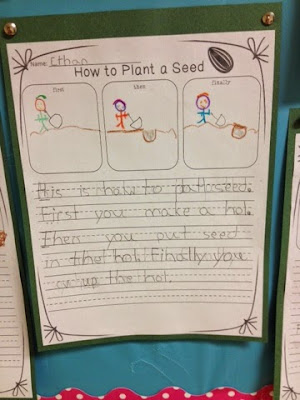 Name: Ethan
How to Plant a Seed
first then finally
this is how to putt seed.
First you make a hol.
Then you put seed
in the hol. finally you
cu up the hol.